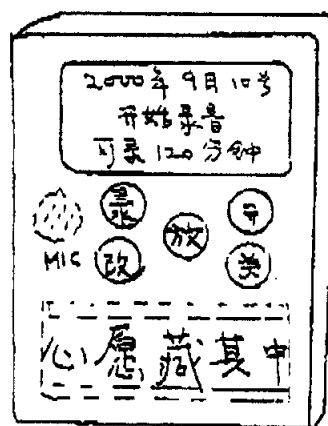 2000年9月10号
开始录音
可录120分钟
录 放 开
MIC 改 关
心愿藏其中